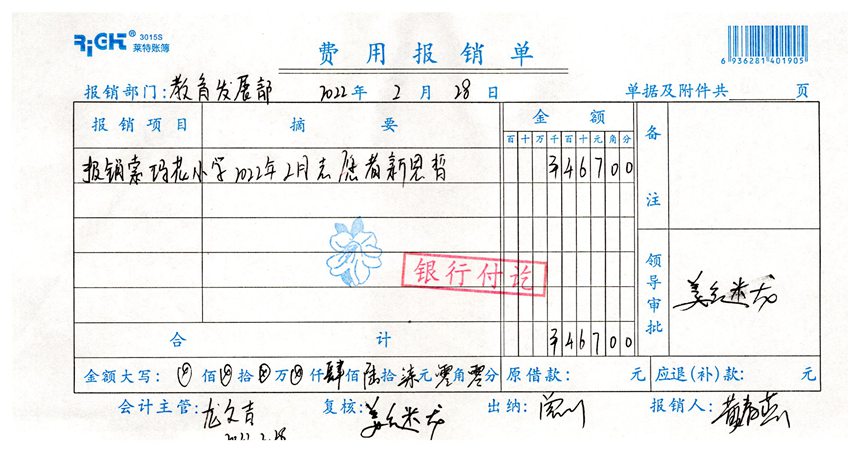 RiGHT® 3015S
莱特账簿
费用报销单
6 936281 401905
报销部门:教育发展部 2022年 2月 28日 单据及附件共 页
报销项目 摘要 金额 备注
百十万千百十元角分
报销索玛花小学2022年2月志愿者新恩哲 ¥46700
银行付讫
领导审批
合计 ¥46700
金额大写: 佰 拾 万 仟肆佰陆拾柒元零角零分 原借款: 元 应退(补)款: 元
会计主管:龙文吉 复核: 出纳: 报销人:
2022.2.28